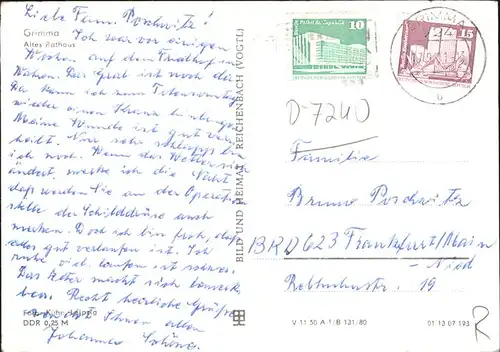 Liebe Fam. Poschwitz!
Grimma
Altes Rathaus
Ich war vor einigen
Wochen auf dem Friedhof in
Das Grab ist noch da
Da kann ich zum Totensonntag
wieder einen Kranz hinlegen.
Meine Wunde ist gut ver-
heilt. Nur sehr
ich noch. Wenn das Wetter sich
ändert, merke ich die Naht
daß werden Sie an der Operations-
stelle der Schilddrüse auch
merken. Doch ich bin froh, daß
alles gut verlaufen ist. Ich
viel laufen ist schwer.
Das Alter macht sich bemerk-
bar. Recht herzliche Grüße
Ihnen allen
Johannes Schöne
Foto: Kühn, Leipzig
DDR 0,25 M
BILD UND HEIMAT REICHENBACH (VOGTL)
V 11 50 A 1/B 131/80
01 13 07 193
10
15
GRIMMA
D-7240
Familie
Bruno Poschwitz
BRD 623 Frankfurt/Main
- Nied
Rebhuhnstr. 19
R